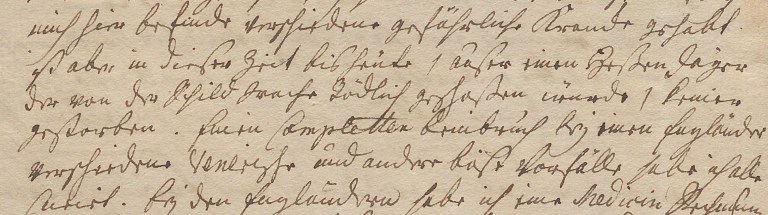 mich hier befinde verschiedene gefährliche Krancke gehabt.
ist aber in dieser Zeit bis heute / außer einen Heßen Jäger
der von der Schild Wache Tödlich geschoßen wurde / keiner
gestorben. Einen Completten beinbruch bey einen Engländer
verschiedene Venerische und andere böse Vorfälle habe ich alle
curirt. bey den Engländern habe ich eine Medicin Rechnun